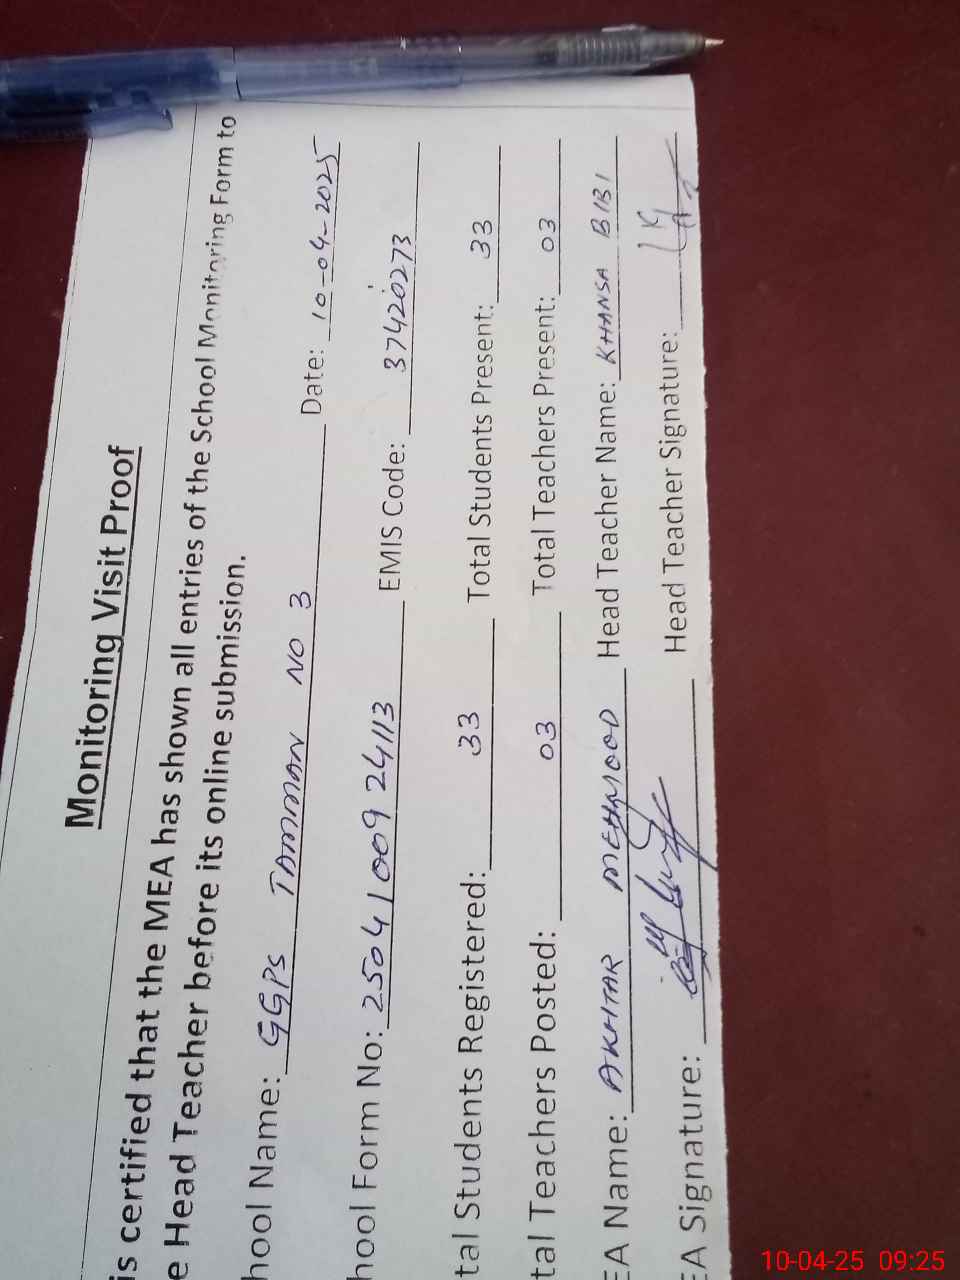 Monitoring Visit Proof
is certified that the MEA has shown all entries of the School Monitoring Form to
e Head Teacher before its online submission.
hool Name: GGPS TAMMAN NO 3 Date: 10-04-2025
hool Form No: 25041009 24113 EMIS Code: 37420273
tal Students Registered: 33 Total Students Present: 33
tal Teachers Posted: 03 Total Teachers Present: 03
EA Name: AKHTAR MEHMOOD Head Teacher Name: KHANSA BIBI
EA Signature: Head Teacher Signature:
10-04-25 09:25